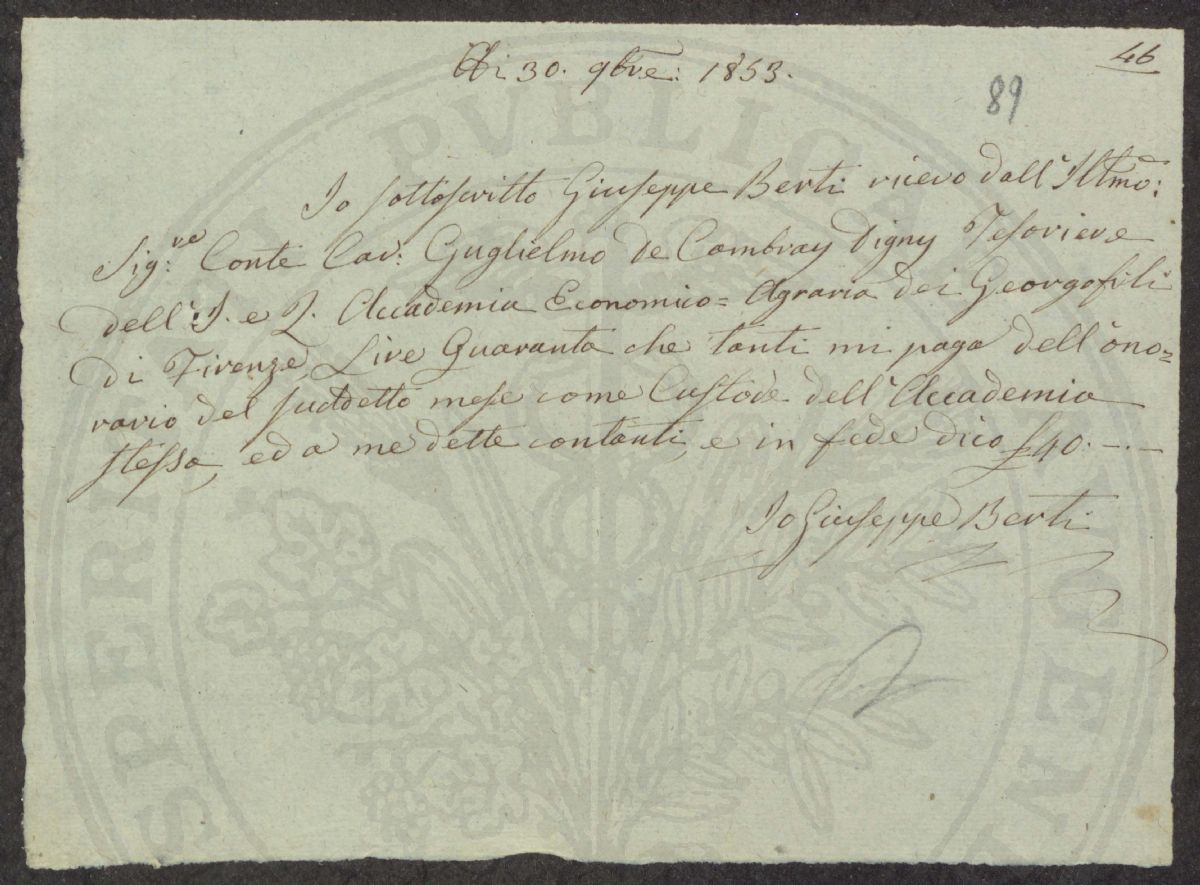 46
A dì 30. 9bre: 1853.
89
Io sottoscritto Giuseppe Berti ricevo dall' Illmo:
Sig:re Conte Cav: Guglielmo de Cambray Digny Tesoriere
dell' I. e R. Accademia Economico= Agraria dei Georgofili
di Firenze Lire Quaranta che tanti mi paga dell' ono=
rario del suddetto mese come Custode dell' Accademia
stessa, ed a me dette contanti, e in fede dico £ 40. -.-
Io Giuseppe Berti